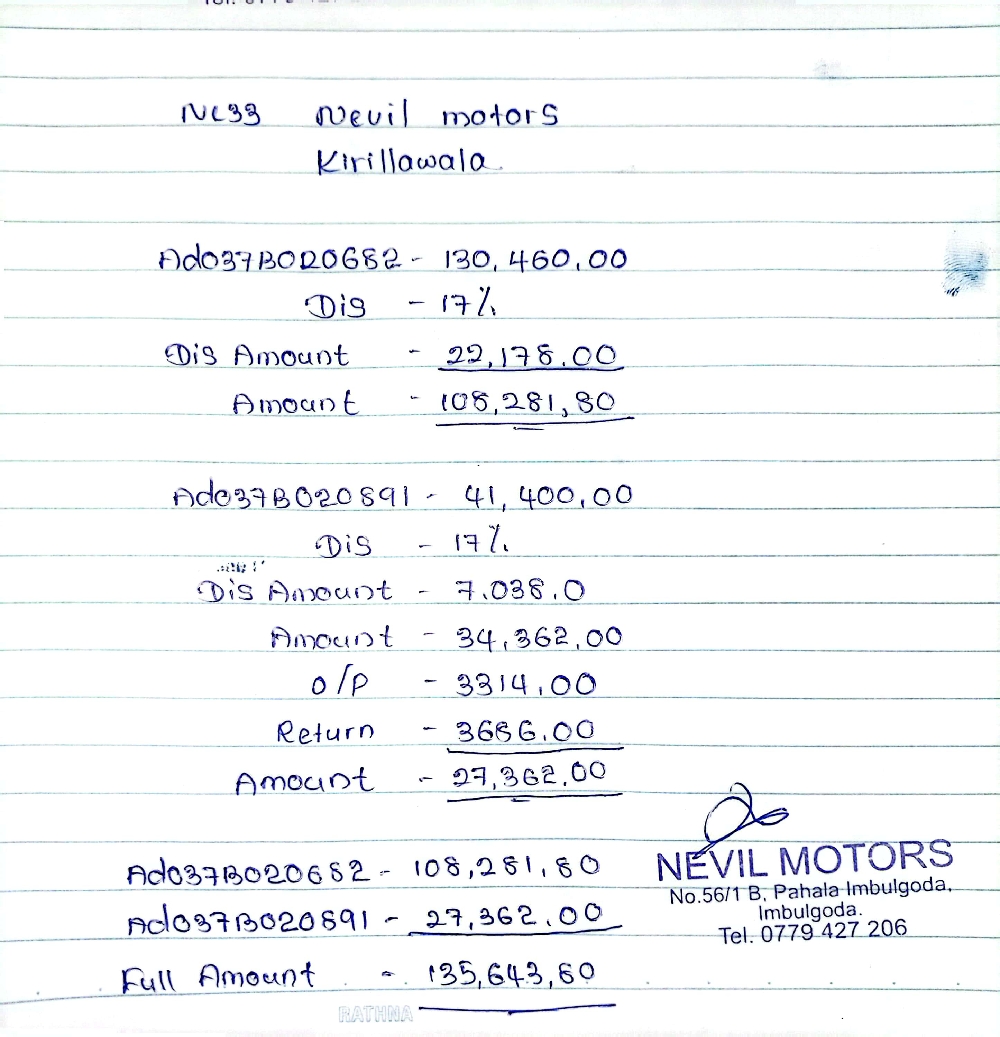 NL33 Nevil motors
Kirillawala
Ado37B020682 - 130,460.00
Dis - 17%
Dis Amount - 22,178.00
Amount - 108,281,80
Ado37B020891 - 41,400.00
Dis - 17%
Dis Amount - 7.038.0
Amount - 34,362,00
O/P - 3314,00
Return - 3686.00
Amount - 27,362,00
Ado37B020682 - 108,281,80
Ado37B020891 - 27,362,00
Full Amount - 135,643,80
NEVIL MOTORS
No.56/1 B, Pahala Imbulgoda,
Imbulgoda.
Tel. 0779 427 206
RATHNA